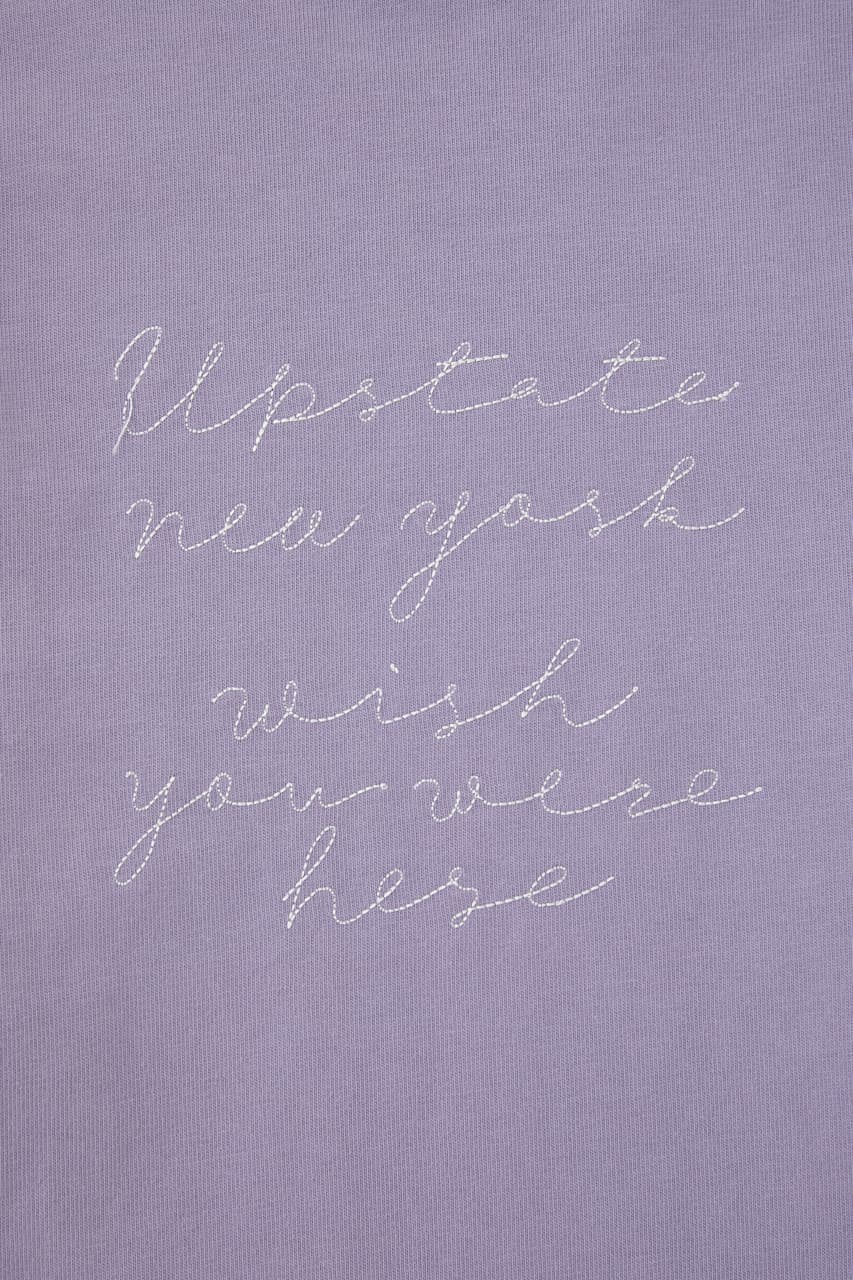 Upstate
new york
wish
you were
here